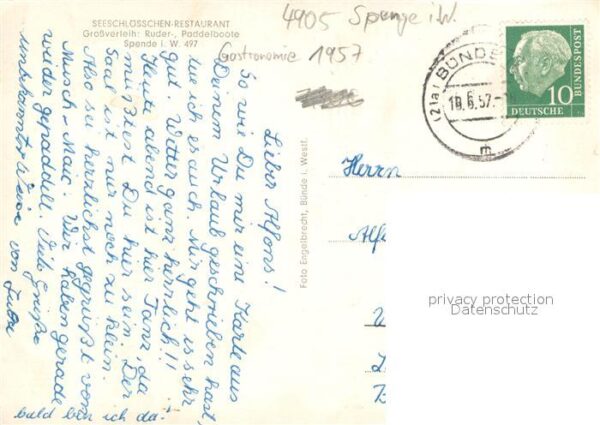 SEESCHLÖSSCHEN-RESTAURANT
Großverleih: Ruder-, Paddelboote
Spende i. W. 497
4905 Spenge i.W.
Gastronomie 1957
(21a) BÜNDE
10.6.57.-
m
DEUTSCHE
BUNDESPOST
10
Lieber Alfons!
So wie Du mir eine Karte aus
Deinem Urlaub geschrieben hast,
tue ich es auch. Mir geht es sehr
gut. Wetter ganz herrlich!!
Heute abend ist hier Tanz, da
müßtest Du hier sein. Der
Saal ist nur noch zu klein.
Also sei herzlichst gegrüßt vom
Wir haben gerade
wieder gepaddelt. Viele Grüße
von
bald bin ich da!
Foto Engelbrecht, Bünde i. Westf.
Herrn
Alf
privacy protection
Datenschutz